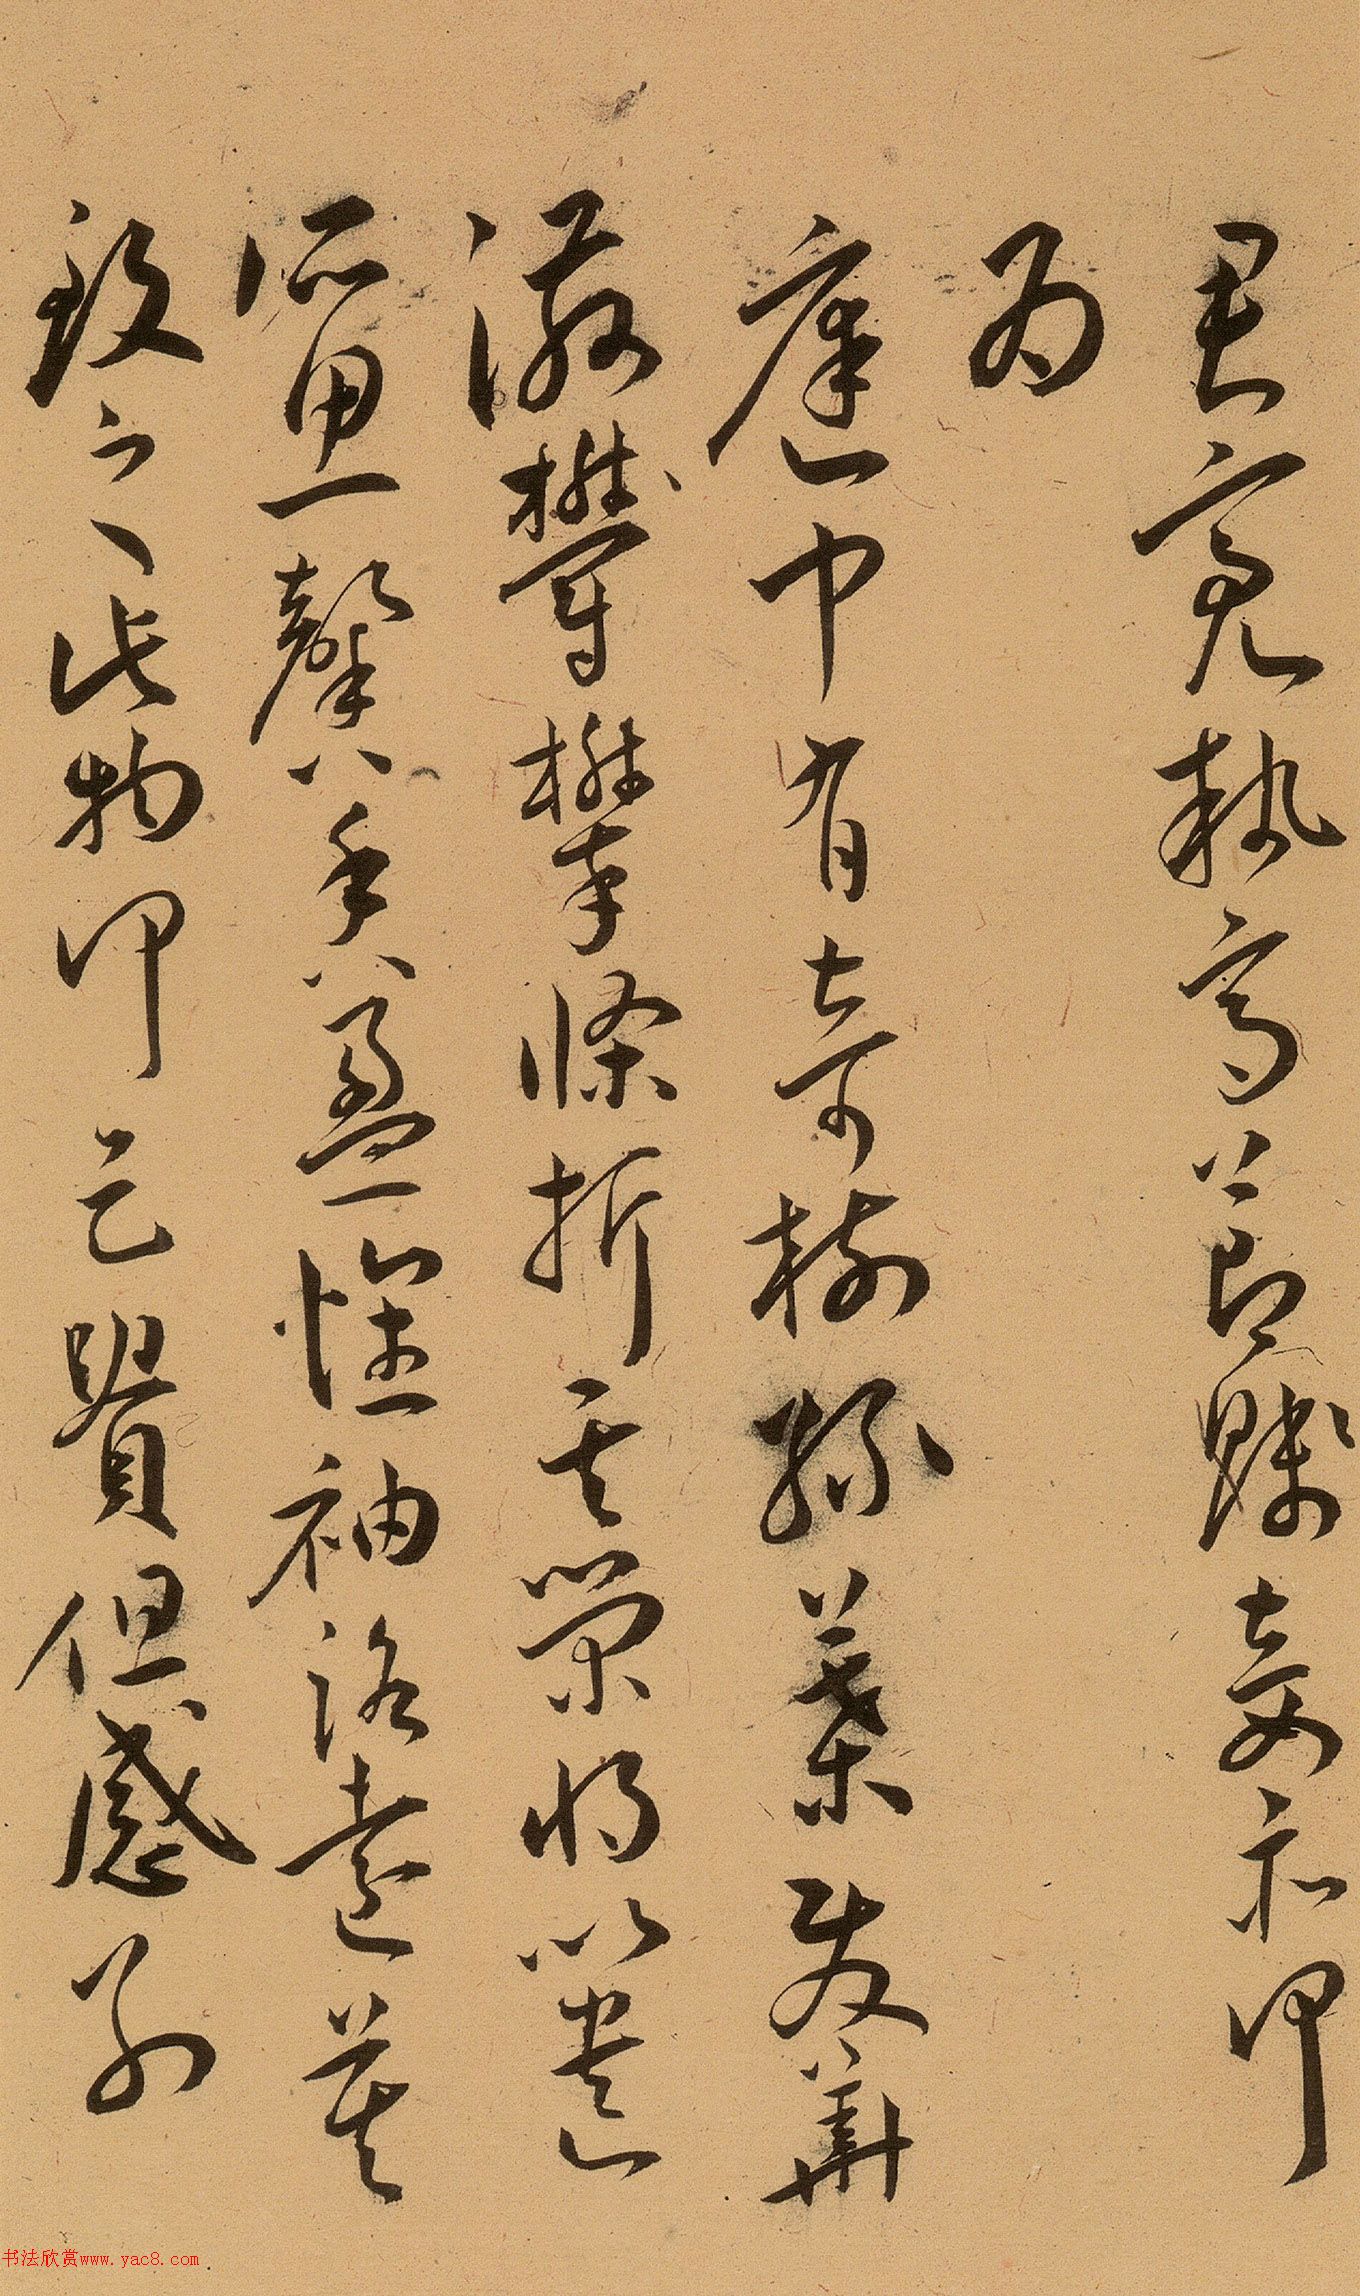 君亮執高節賤妾亦何
為
庭中有奇樹綠葉發華
滋攀攀條折其榮將以遺
所思馨香盈懷袖路遠莫
致之此物何足貴但感別
书法欣赏www.yac8.com